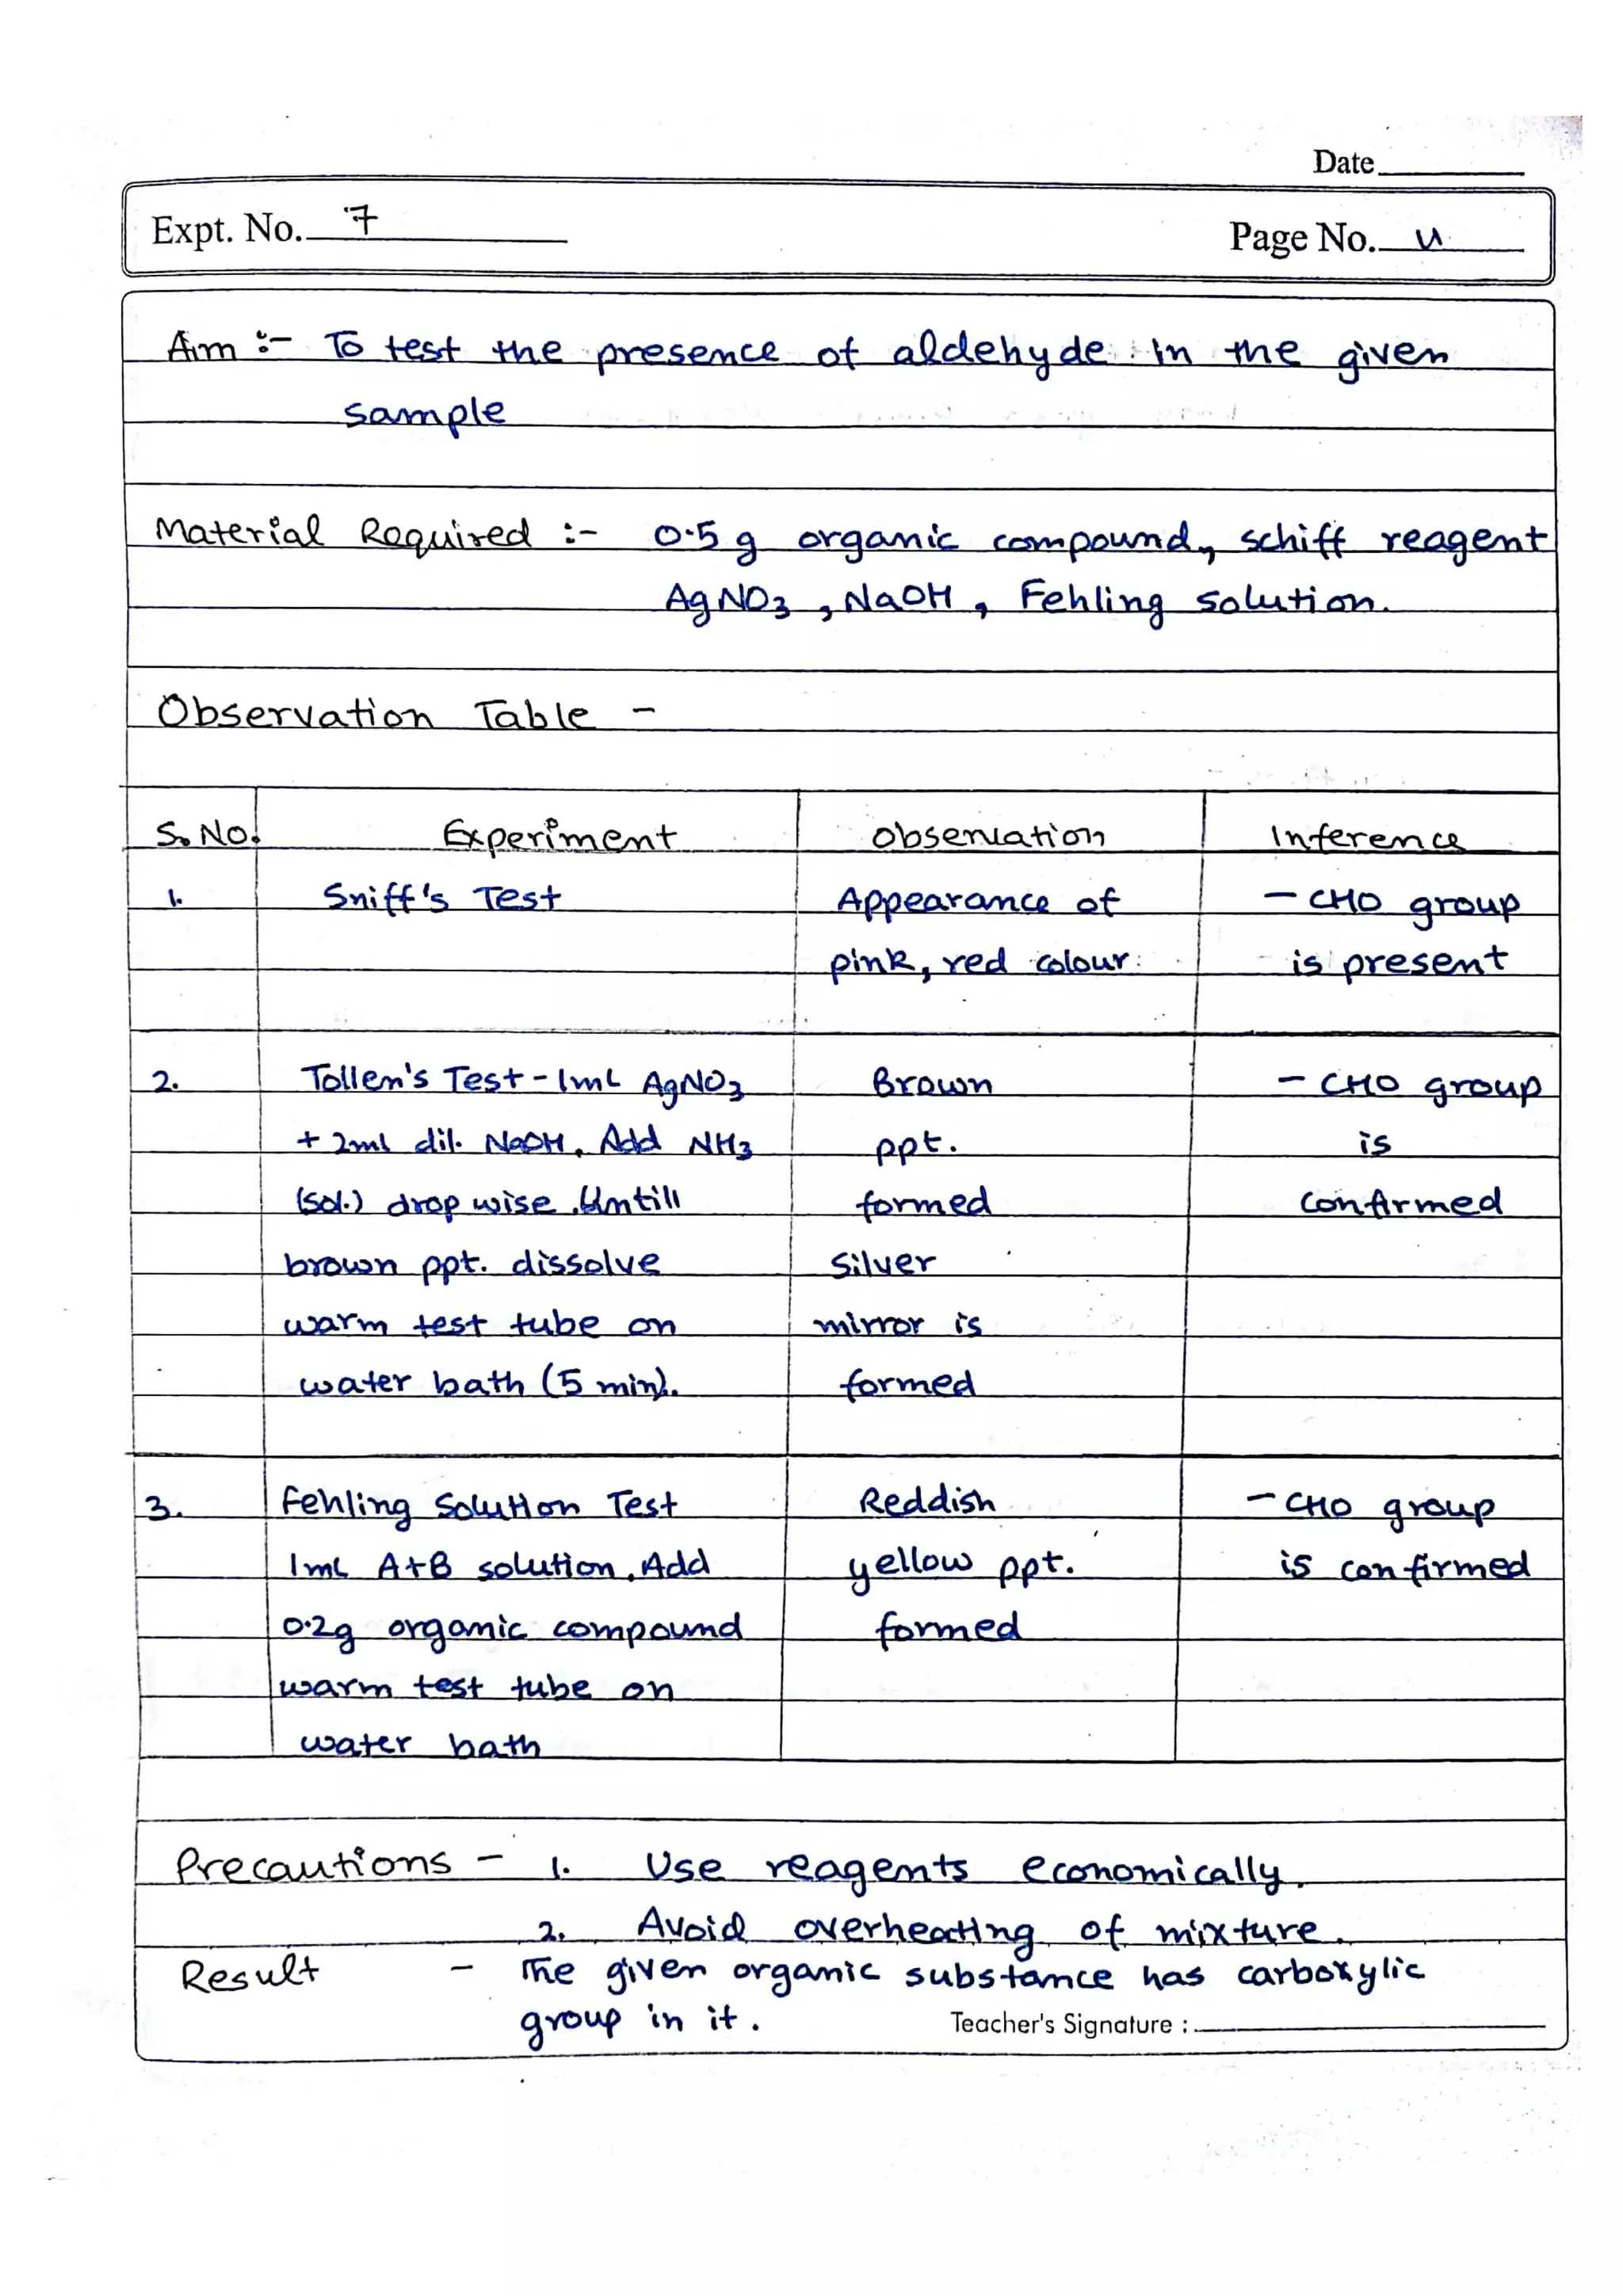 Date
Expt. No. 7
Page No. 4
Aim :- To test the presence of aldehyde in the given
sample
Material Required :- 0.5 g organic compound, schiff reagent
AgNO3, NaOH, Fehling solution.
Observation Table -
S. No. Experiment Observation Inference
1. Sniff's Test Appearance of - CHO group
pink, red colour is present
2. Tollen's Test - 1mL AgNO3 Brown - CHO group
+ 2ml dil. NaOH. Add NH3 ppt. is
(sol.) drop wise. Untill formed confirmed
brown ppt. dissolve silver
warm test tube on mirror is
water bath (5 min). formed
3. Fehling Solution Test Reddish - CHO group
1mL A+B solution. Add yellow ppt. is confirmed
0.2g organic compound formed
warm test tube on
water bath
Precautions - 1. Use reagents economically.
2. Avoid overheating of mixture.
Result - The given organic substance has carboxylic
group in it.
Teacher's Signature :